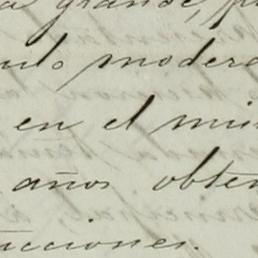 a grande, p
ulo modera
en el mis
años obten
ucciones.